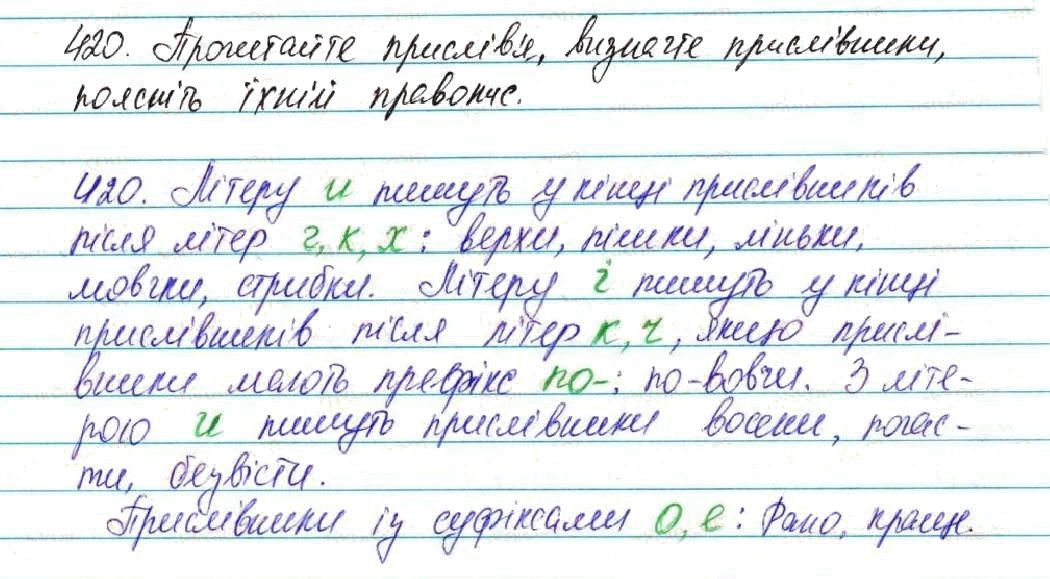 420. Прочитайте прислів'я, визначте прислівники,
поясніть їхній правопис.
420. Літеру и пишуть у кінці прислівників
після літер г, к, х: верхи, пішки, ліньки,
мовчки, стрибки. Літеру і пишуть у кінці
прислівників після літер к, ч, якщо прислі-
вники мають префікс по-: по-вовчи. З літе-
рою и пишуть прислівники восени, почас-
ти, безвісти.
Прислівники із суфіксами о, е: Рано, краще.